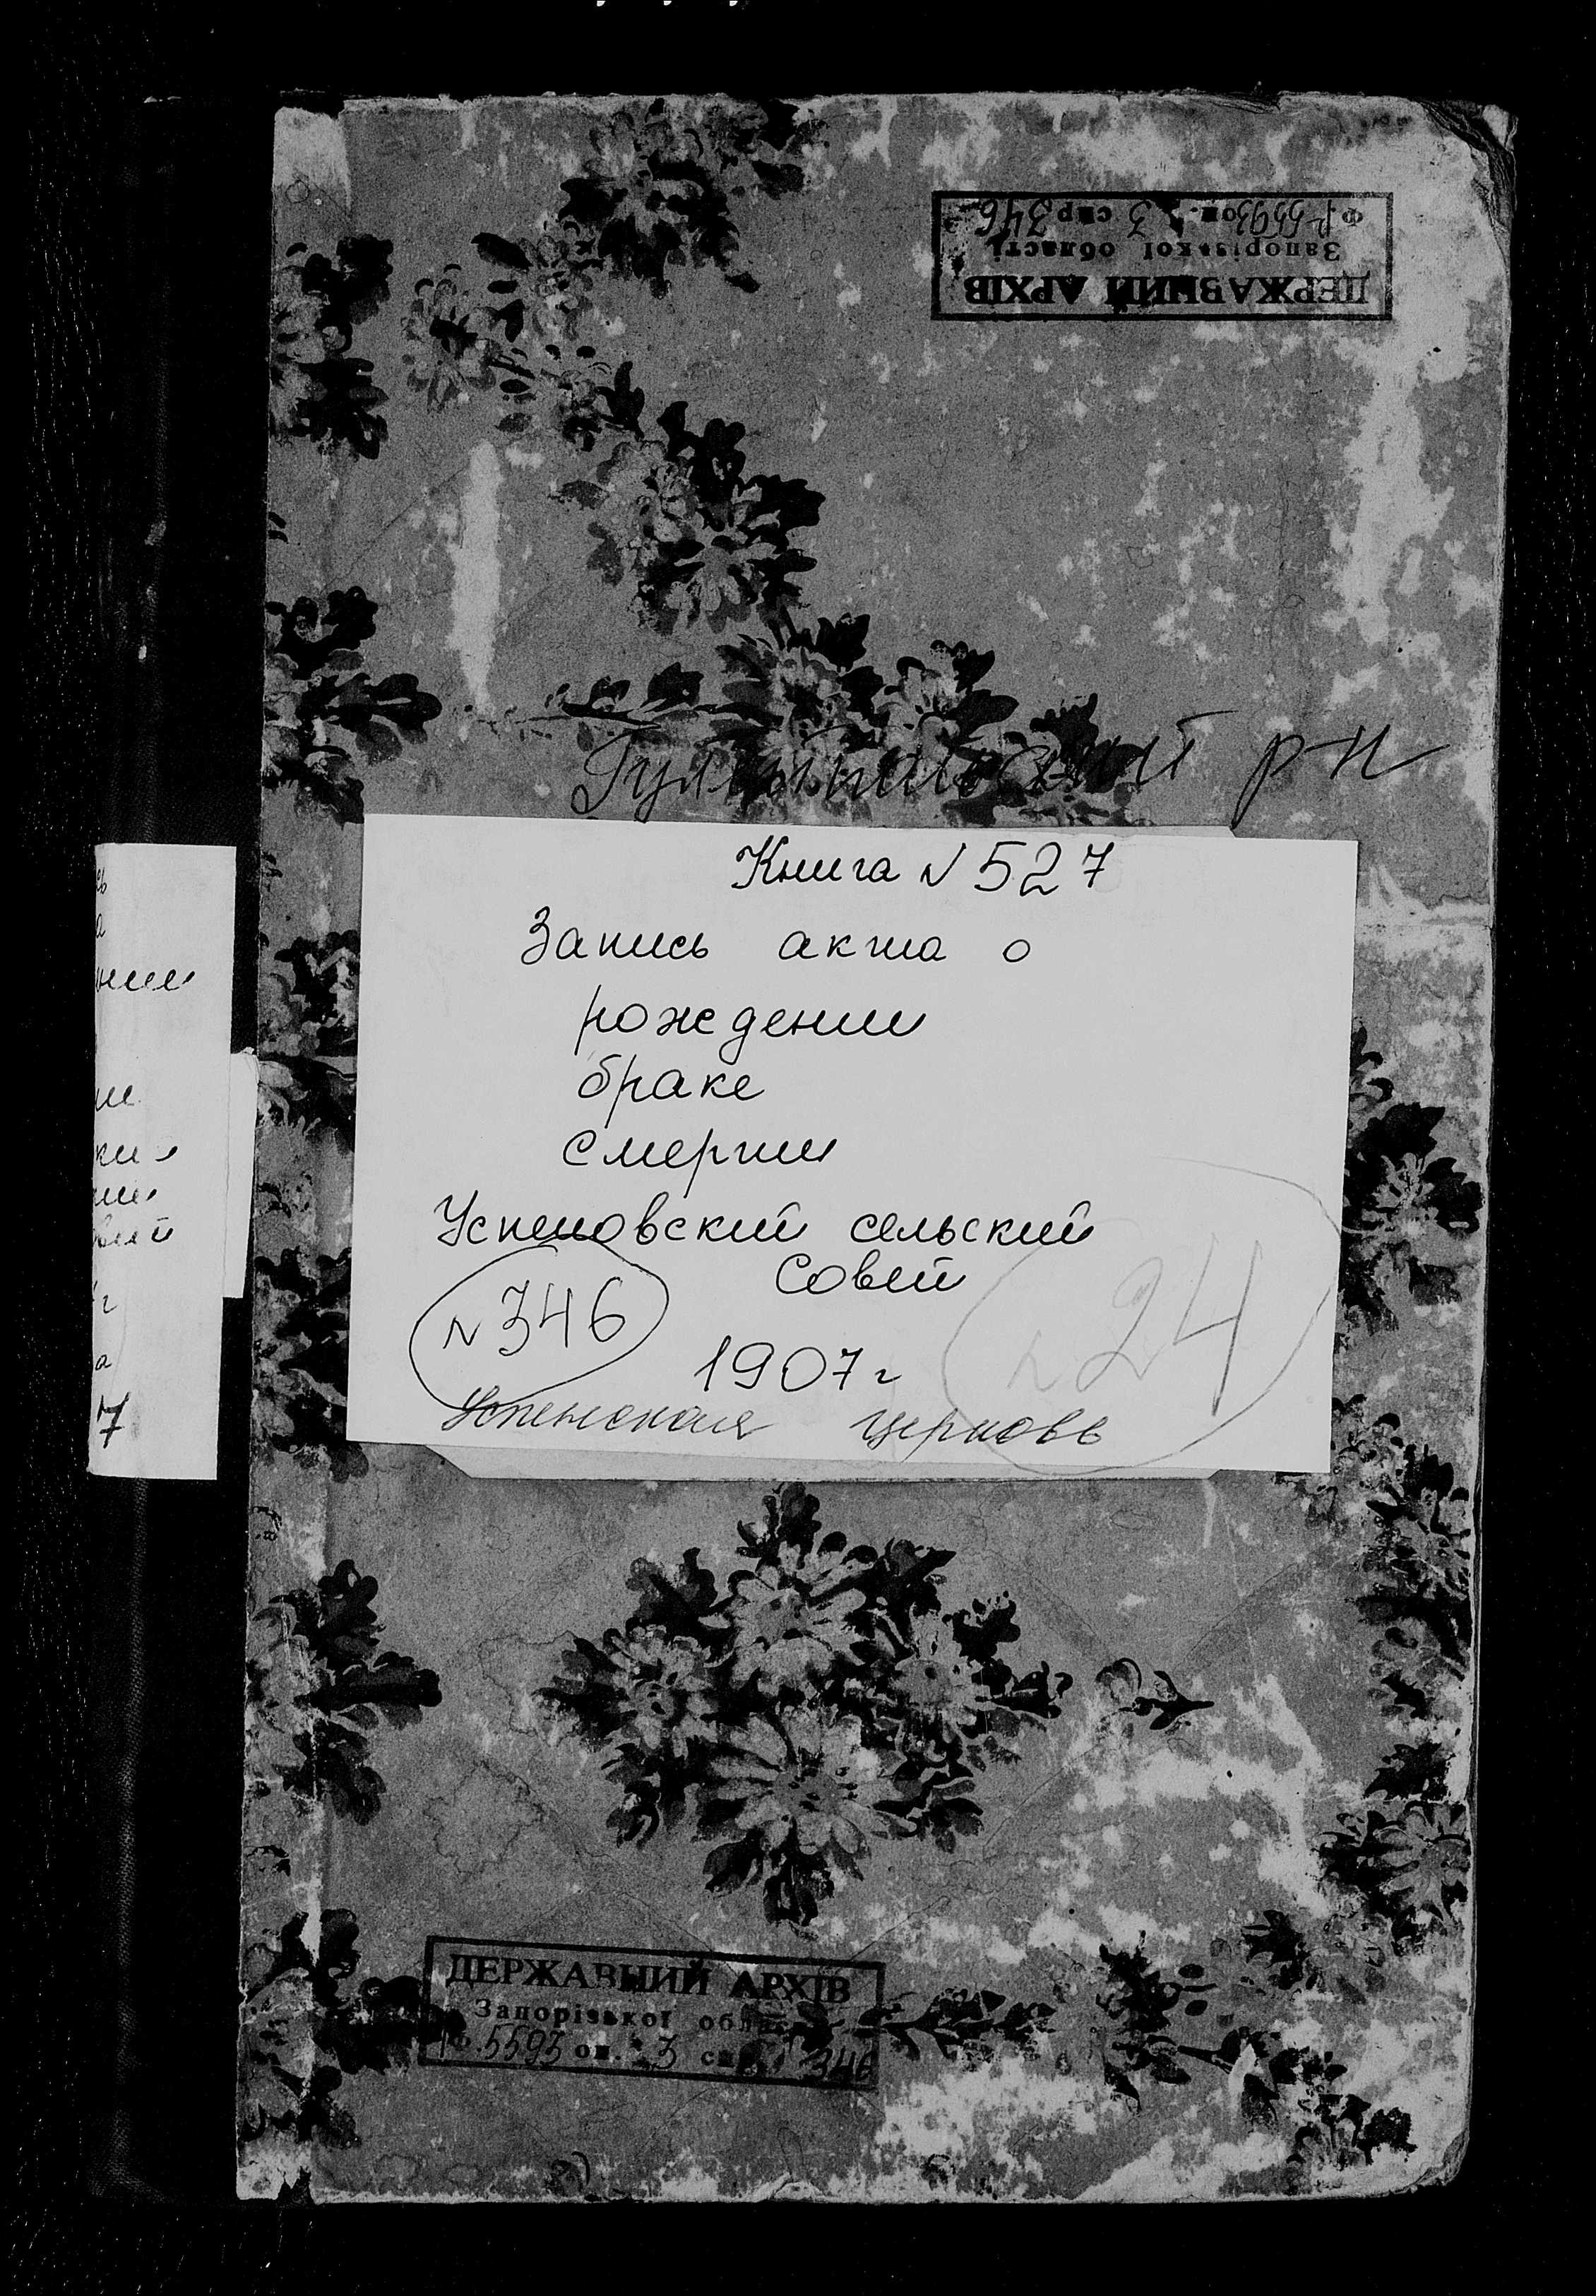 ДЕРЖАВНИЙ АРХІВ
Запорізької області
ф. Р-5593 оп. 3 спр 346
Гуляйпольский р-н
Книга N 527
Запись акта о
рождении
браке
смерти
Успеновский сельский
Совет
N 346
N 24
1907 г
Успенская церковь
7
ДЕРЖАВНИЙ АРХІВ
Запорізької
5593 оп. 3 346